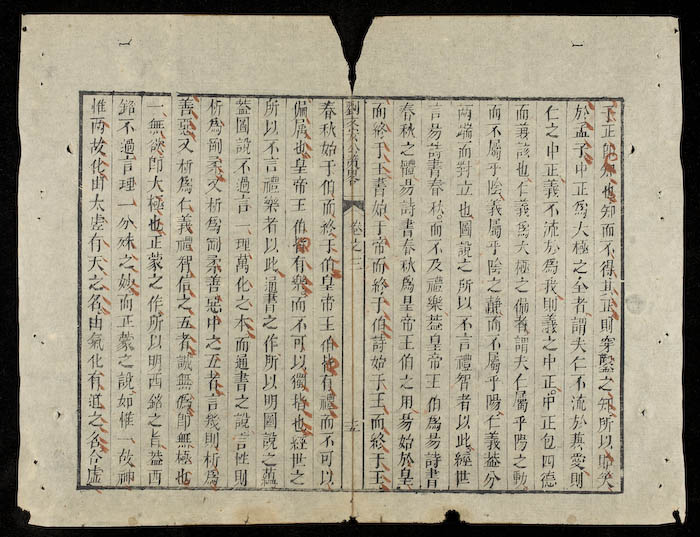 于正的知也知而不得其正則穿鑿之知所以
於孟子中正爲大極之全者謂夫仁不流於兼愛則
仁之中正義不流於爲我則義之中正中正包四德
而義該也仁義爲大極之偏者謂夫仁屬乎陽之動
而不屬乎陰義屬乎陰之靜而不屬乎陽仁義蓋分
兩端而對立也圖說之所以不言禮智者以此經世
言易詩書春秋而不及禮樂蓋皇帝王伯爲易詩書
春秋之體易詩書春秋爲皇帝王伯之用易始於皇
而終于王書始于帝而終于伯詩始于王而終于王
卷之三
春秋始于伯而終于伯皇帝王伯皆有禮而不可以
偏屬也皇帝王伯皆有樂而不可以獨指也經世之
所以不言禮樂者以此通書之作所以明圖說之蘊
蓋圖說不過言一理萬化之本而通書之說言性則
析爲剛柔又析爲剛柔善惡中之五者言幾則析爲
善惡又析爲仁義禮智信之五者誠無爲卽無極也
一無欲卽大極也正蒙之作所以明西銘之旨蓋西
銘不過言理一分殊之妙而正蒙之說如惟一故神
惟兩故化由太虛有天之名由氣化有道之名合虛